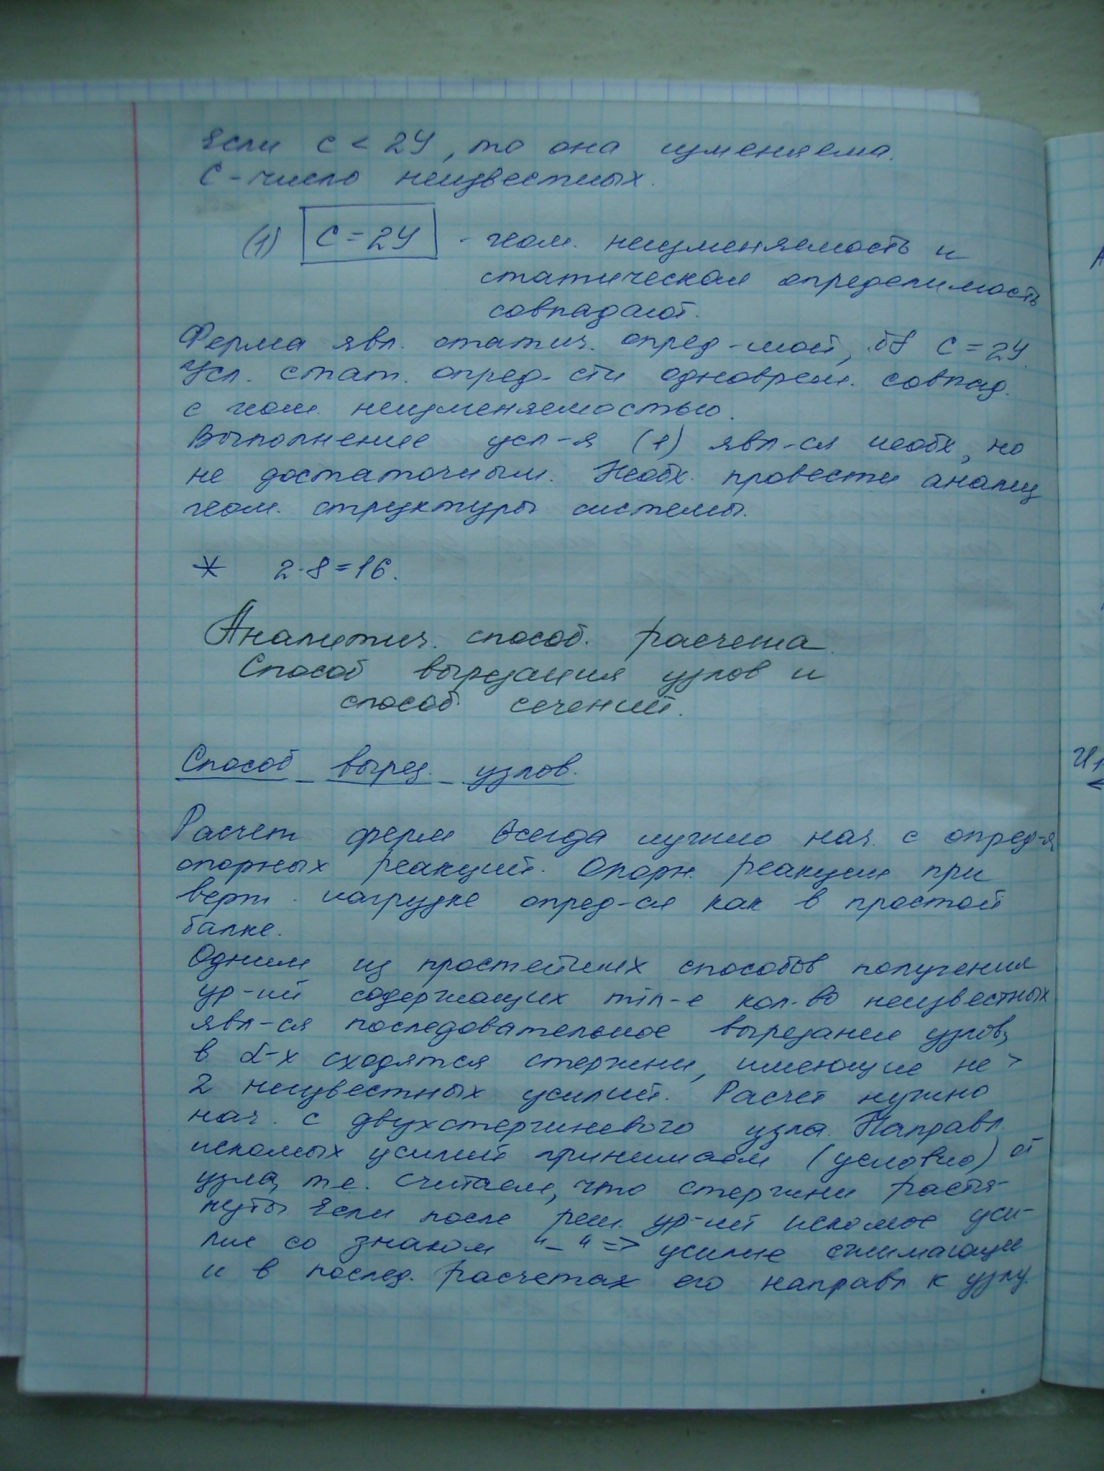 Если С < 2У, то она изменяема.
С - число неизвестных.
(1) С = 2У - геом. неизменяемость и
статическая определимость
совпадают.
Ферма явл. статич. опред-мой, С = 2У
Усл. стат. опред-сти одноврем. совпад.
с геом. неизменяемостью.
Выполнение усл-я (1) явл-ся необх, но
не достаточным. Необх. провести анализ
геом. структуры системы.
* 2·8=16.
Аналитич. способ. расчета.
Способ вырезания узлов и
способ сечений.
Способ вырез. узлов.
Расчет ферм всегда нужно нач. с опред-я
опорных реакций. Опорн. реакции при
верт. нагрузке опред-ся как в простой
балке.
Одним из простейших способов получения
ур-ий содержащих min-е кол-во неизвестных
явл-ся последовательное вырезание узлов,
в к-х сходятся стержни, имеющие не >
2 неизвестных усилий. Расчет нужно
нач. с двухстержневого узла. Направл.
искомых усилий принимаем (условно) от
узла, т.е. считаем, что стержни растя-
нуты. Если после реш. ур-ий искомое уси-
лие со знаком "-" => усилие сжимающее
и в послед. расчетах его направл к узлу.
И